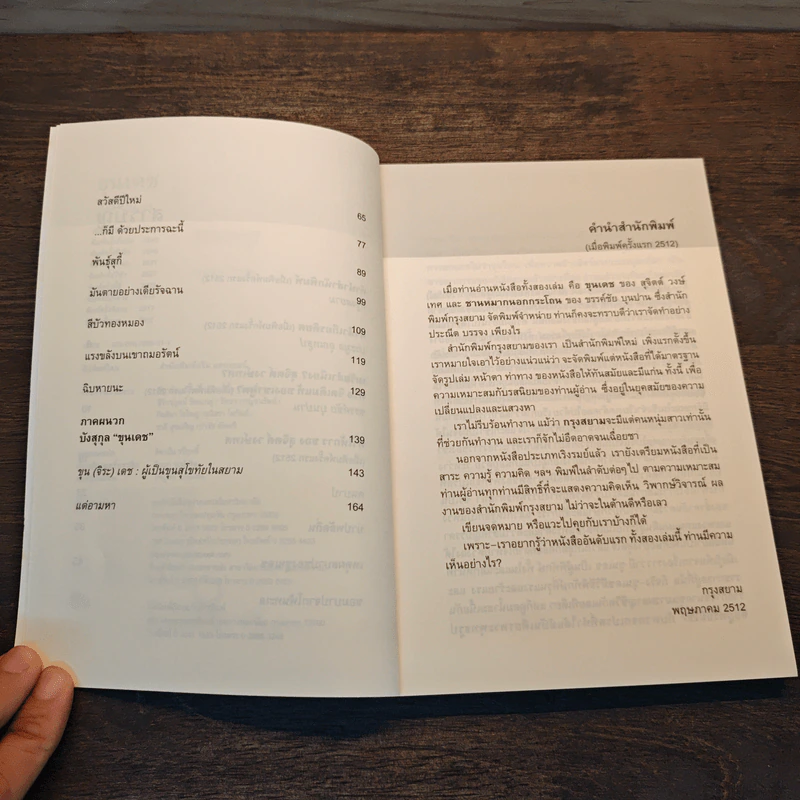 สวัสดีปีใหม่
65
...ก็มี ด้วยประการฉะนี้
77
พันธุ์สุกี้
89
มันตายอย่างเดียรัจฉาน
99
สีบัวทองหมอง
109
แรงขลังบนเขาถมอรัตน์
119
ฉิบหายนะ
129
ภาคผนวก
บังสุกุล "ขุนเดช"
139
ขุน (จิระ) เดช : ผู้เป็นขุนสุโขทัยในสยาม
143
แต่อามหา
164
คำนำสำนักพิมพ์
(เมื่อพิมพ์ครั้งแรก 2512)
เมื่อท่านอ่านหนังสือทั้งสองเล่ม คือ ขุนเดช ของ สุจิตต์ วงษ์
เทศ และ ชานหมากนอกกระโถน ของ ขรรค์ชัย บุนปาน ซึ่งสำนัก
พิมพ์กรุงสยาม จัดพิมพ์จำหน่าย ท่านก็คงจะทราบดีว่าเราจัดทำอย่าง
ประณีต บรรจง เพียงไร
สำนักพิมพ์กรุงสยามของเรา เป็นสำนักพิมพ์ใหม่ เพิ่งแรกตั้งขึ้น
เราหมายใจเอาไว้อย่างแน่วแน่ว่า จะจัดพิมพ์แต่หนังสือที่ได้มาตรฐาน
จัดรูปเล่ม หน้าตา ท่าทาง ของหนังสือให้ทันสมัยและมีแก่น ทั้งนี้ เพื่อ
ความเหมาะสมกับรสนิยมของท่านผู้อ่าน ซึ่งอยู่ในยุคสมัยของความ
เปลี่ยนแปลงและแสวงหา
เราไม่รีบร้อนทำงาน แม้ว่า กรุงสยามจะมีแต่คนหนุ่มสาวเท่านั้น
ที่ช่วยกันทำงาน และเราก็จักไม่อืดอาดจนเฉื่อยชา
นอกจากหนังสือประเภทเริงรมย์แล้ว เรายังเตรียมหนังสือที่เป็น
สาระ ความรู้ ความคิด ฯลฯ พิมพ์ในลำดับต่อๆไป ตามความเหมาะสม
ท่านผู้อ่านทุกท่านมีสิทธิ์ที่จะแสดงความคิดเห็น วิพากษ์วิจารณ์ ผล
งานของสำนักพิมพ์กรุงสยาม ไม่ว่าจะในด้านดีหรือเลว
เขียนจดหมาย หรือแวะไปคุยกับเราบ้างก็ได้
เพราะ–เราอยากรู้ว่าหนังสืออันดับแรก ทั้งสองเล่มนี้ ท่านมีความ
เห็นอย่างไร?
กรุงสยาม
พฤษภาคม 2512